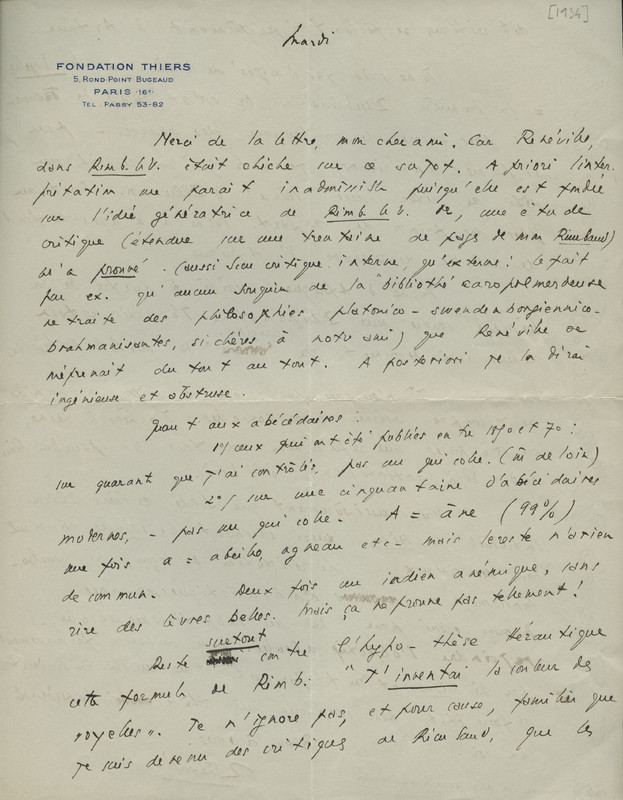 [1934]
Mardi
FONDATION THIERS
5, ROND-POINT BUGEAUD
PARIS (16E)
TEL. PASSY 53-82
Merci de la lettre, mon cher ami. Car Renéville,
dans Rimb. le V. était chiche sur ce sujet. A priori l'inter
prétation me parait inadmissible puisqu'elle est fondée
sur l'idée génératrice de Rimb. le V. Or, une étude
critique (étendue sur une trentaine de pages de mon Rimbaud)
m'a prouvé. (aussi bien critique interne qu'externe: le fait
par ex. qu'aucun bouquin de la "bibliothè caropolmerdeuse
ne traite des philosophies platonico-swendenborgiennico-
brahmanisantes, si chères à notre ami) que Renéville se
méprenait du tout au tout. A posteriori je la dirai
ingénieuse et abstruse.
Quant aux abécédaires :
1°/ ceux qui ont été publiés entre 1850 et 70 :
sur quarant que j'ai contrôlés, pas un qui colle. (m̄ de loin)
2°/ sur une cinquantaine d'abécédaires
modernes, - pas un qui colle. A = âne (99%)
une fois a = abeille, agneau etc - mais le reste n'a rien
de commun. Deux fois un indien anémique, sans
rire des lèvres belles. Mais ça ne prouve pas tellement !
Reste surtout contre l'hypo-thèse Hérautique
cette formule de Rimb: "J'inventai la couleur des
voyelles". Je n'ignore pas, et pour cause, familier que
je suis devenu des critiques de Rimbaud, que les